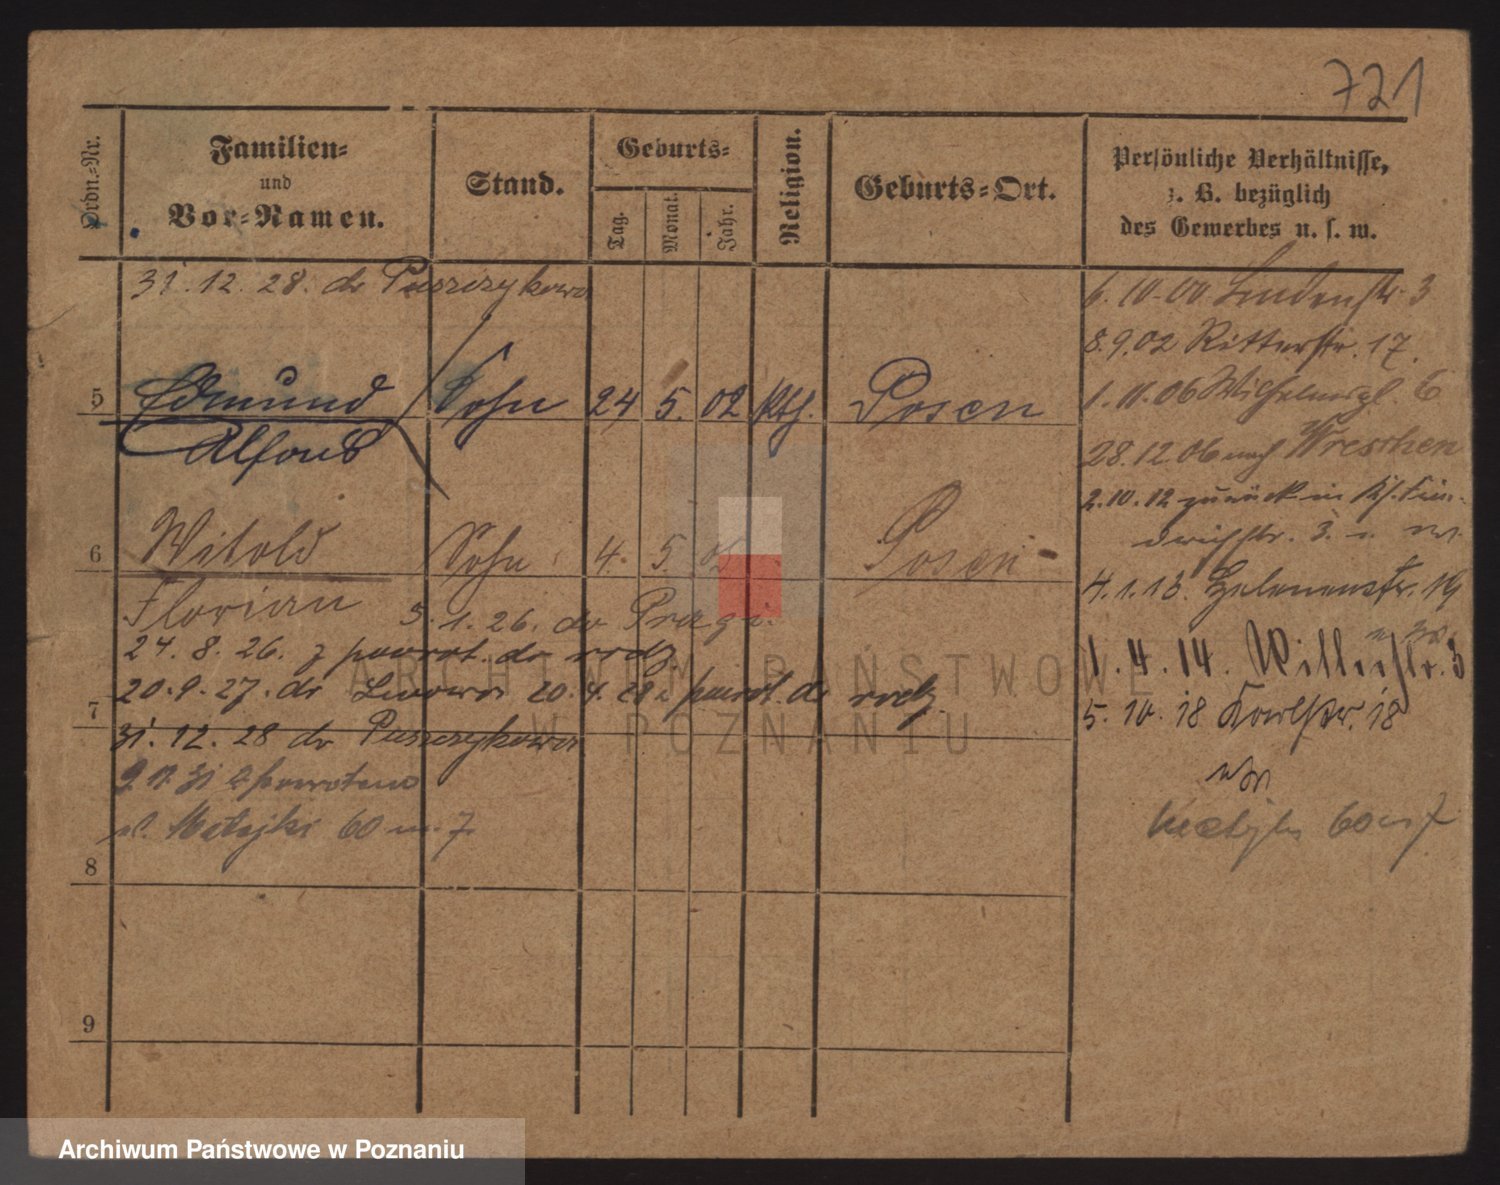 721
Ordn.-Nr.
Familien-
und
Vor-Namen.
Stand.
Geburts-
Tag.
Monat.
Jahr.
Religion.
Geburts-Ort.
Persönliche Verhältnisse,
z. B. bezüglich
des Gewerbes u. s. w.
31. 12. 28. do Puszczykowa
5 Edmund Sohn 24 5. 02 kth. Posen
Alfons
6 Witold Sohn 4. 5. Posen
Florian 5. 1. 26. do Pragi.
24. 8. 26. z powrot. do rodz.
20. 9. 27. do Lwowa 20. 4. 28 z powrot. do rodz.
7
31. 12. 28 do Puszczykowa
z powrotem
ul. Matejki 60 m. 7.
8
9
6. 10. 00 Lindenstr. 3
8. 9. 02 Ritterstr. 17.
1. 11. 06 Wilhelmspl. 6
28. 12. 06 nach Wreschen
2. 10. 12 zurück in
3.
4. 1. 13. Helenenstr. 19
1. 4. 14. str. 3
5. 10. 18 Karlstr. 18
Matejki 60 m 7
ARCHIWUM PAŃSTWOWE
W POZNANIU
Archiwum Państwowe w Poznaniu